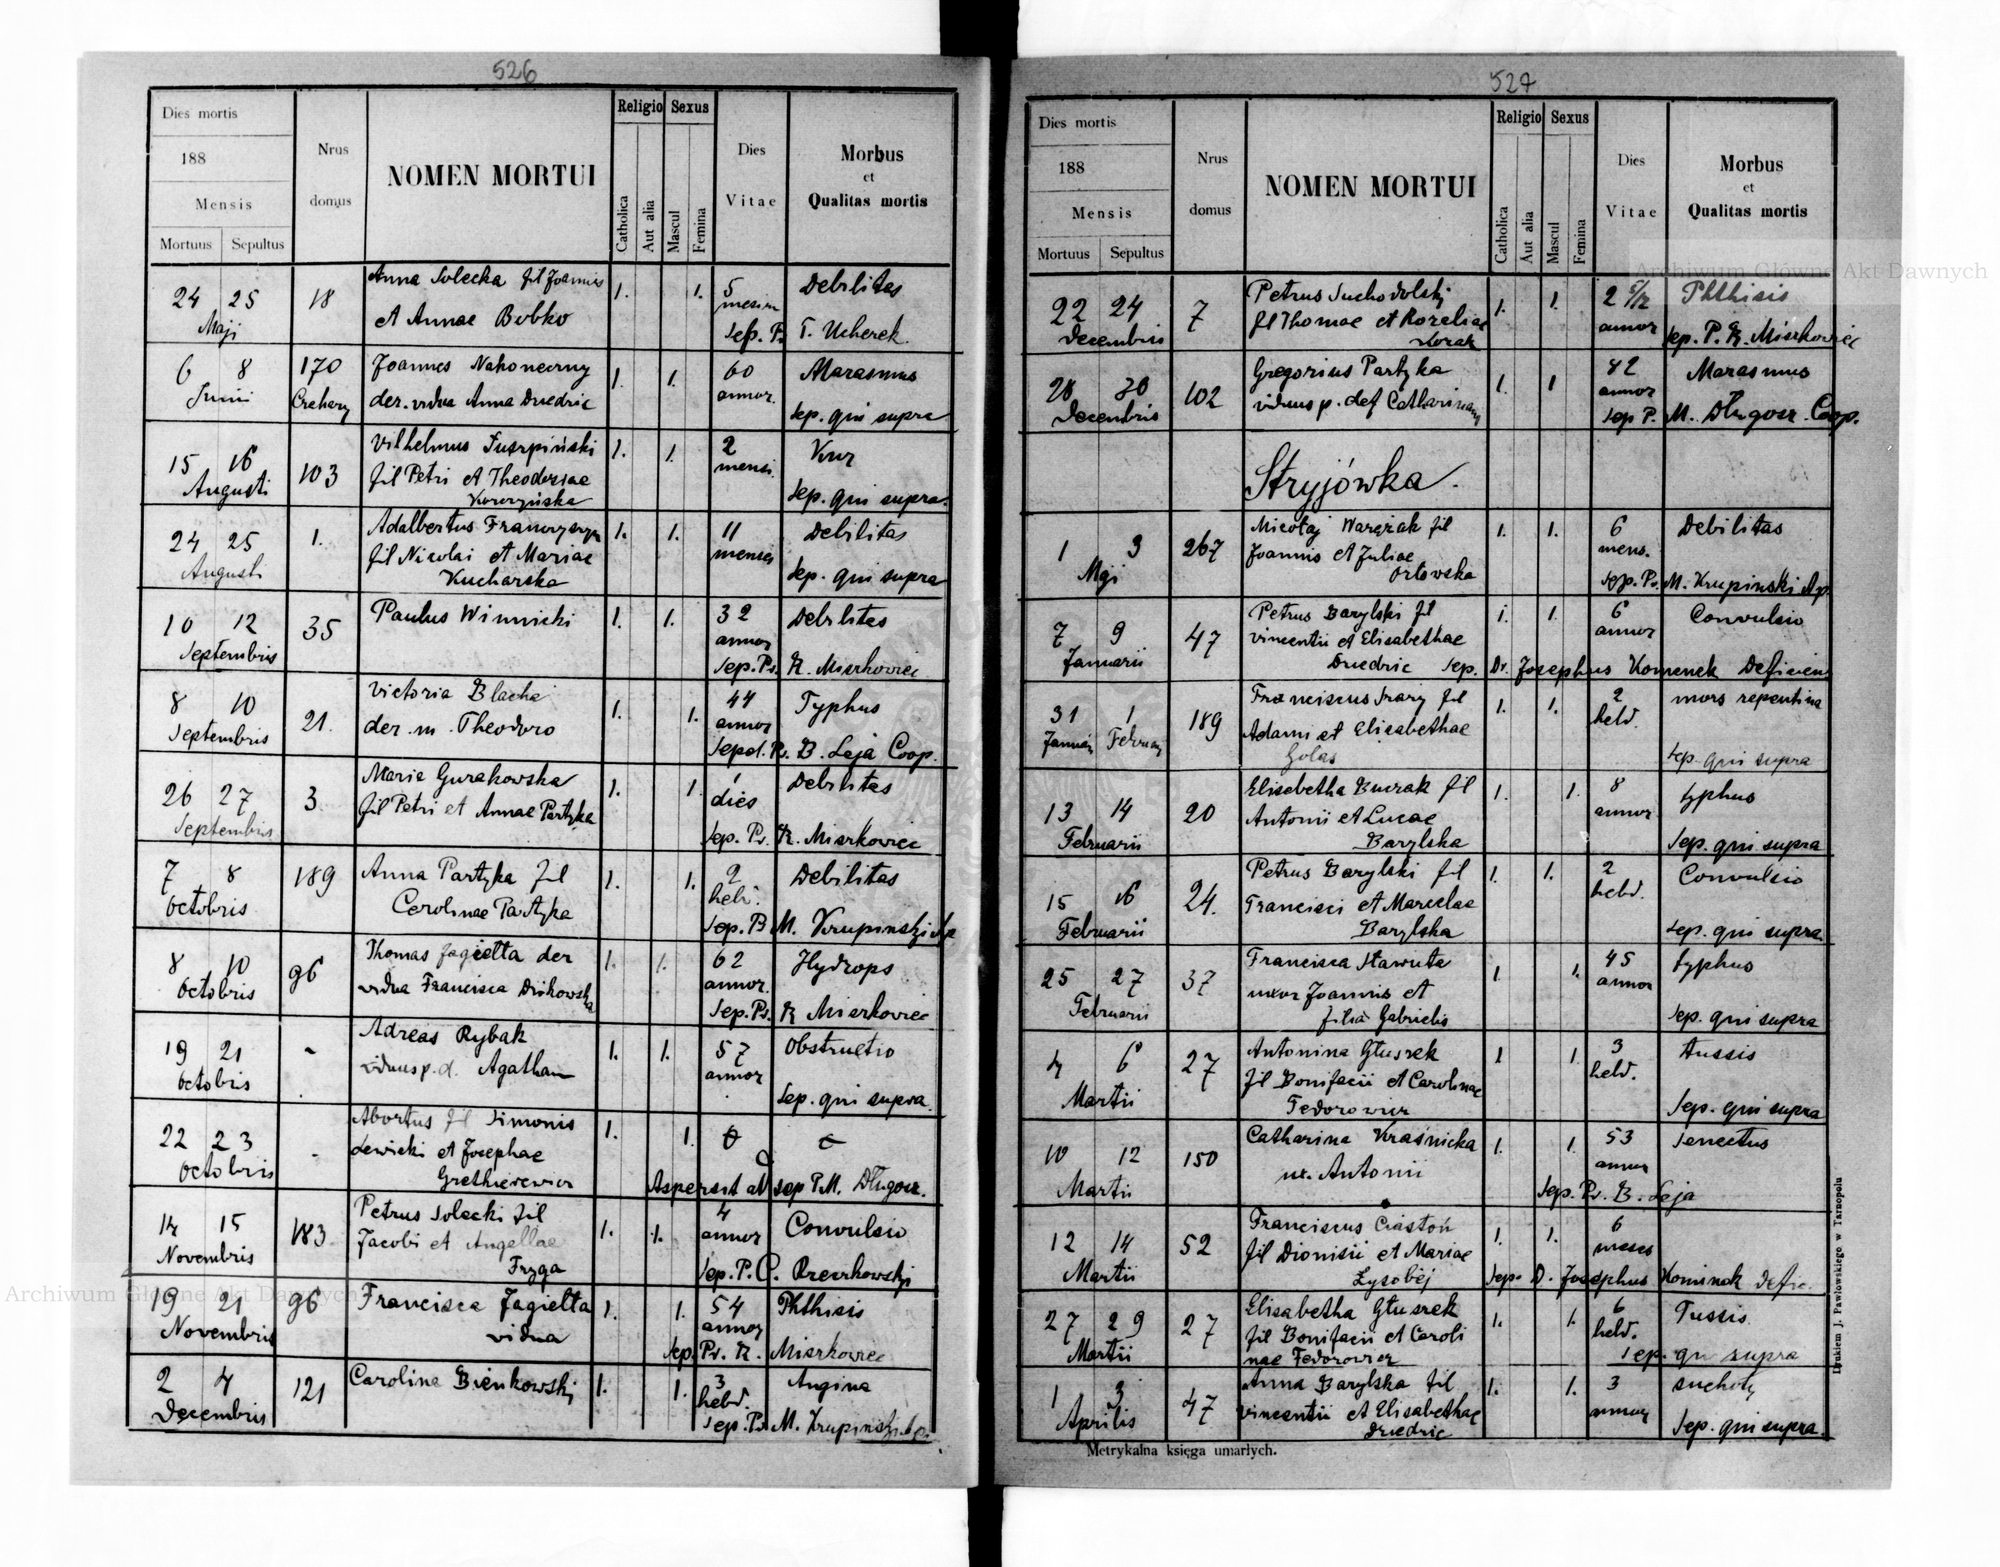 526
Dies mortis
188
Mensis
Mortuus Sepultus
Nrus
domus
NOMEN MORTUI
Religio
Catholica
Aut alia
Sexus
Mascul
Femina
Dies
Vitae
Morbus
et
Qualitas mortis
24 25 18 Anna Solecka fil Joannis 1. 1. 5 Debilitas
Maji et Annae Bobko
Sep. P. T. Ucherek.
6 8 170 Joannes Nahoneczny 1. 1. 60 Marasmus
Junii der. vidua Anna Dziedzic annor.
Sep. qui supra
15 16 103 Vilhelmus 1. 1. 2
Augusti fil Petri et Theodosiae mensi
Sep. qui supra.
24 25 1. Adalbertus 1. 1. 11 Debilitas
Augusti fil Nicolai et Mariae menses
Kucharska Sep. qui supra
10 12 35 Paulus Winnicki 1. 1. 32 Debilitas
Septembris annor
Sep. Pr. R. Mierkowiec
8 10 21. Victoria Blacha 1. 1. 44 Typhus
Septembris der. m. Theodoro annor
Sepel. Pr. B. Leja Coop.
26 27 3 Maria Gurakowska 1. 1 1 Debilitas
Septembris fil Petri et Annae Partyka dies
Sep. Pr. R. Mierkowiec
7 8 189 Anna Partyka fil 1. 1. 2 Debilitas
Octobris Carolinae Partyka
Sep. P. M. Krupinski
8 10 96 Thomas Jagiełła der 1. 1. 62 Hydrops
Octobris vidua Francisca annor.
Sep. Pr. R Mierkowiec
19 21 - Adreas Rybak 1. 1. 57 Obstructio
Octobris viduus p. d. Agatham annor
Sep. qui supra.
22 23 - Abortus fil Simonis 1. 1.
Octobris Lewicki et Josephae
Aspersit et sep P.M. Długosz.
14 15 183 Petrus Solecki fil 1. 1. 4 Convulsio
Novembris Jacobi et Angellae annor
Fryga Sep. P.
19 21 96 Francisca Jagiełła 1. 1. 54 Phthisis
Novembris vidua annor
Sep. Pr. R. Mierkowiec
2 4 121 Carolina Bieńkowski 1. 1. 3 Angina
Decembris hebd.
Sep. Pr. M. Krupinski
527
Dies mortis
188
Mensis
Mortuus Sepultus
Nrus
domus
NOMEN MORTUI
Religio
Catholica
Aut alia
Sexus
Mascul
Femina
Dies
Vitae
Morbus
et
Qualitas mortis
22 24 7 Petrus Suchodolski 1. 1. Phthisis
Decembris fil Thomae et Rozaliae annor
Sep. P. R. Mierkowiec
28 30 102 Gregorius Partyka 1. 1 Marasmus
Decembris viduus p. def Catharinam annor
Sep P. M. Długosz. Coop.
Stryjówka.
1 3 267 fil 1. 1. 6 Debilitas
Joannis et Juliae mens.
Orłowska Sep. Pr. M. Krupinski
7 9 47 Petrus Barylski fil 1. 1. 6 Convulsio
Januarii Vincentii et Elisabethae annor
Dziedzic Sep. Dr. Josephus
31 1 189 Franciscus fil 1. 1. 2 mors repentina
Adami et Elisabethae hebd.
Golas Sep. qui supra
13 14 20 Elisabetha fil 1. 1. 8 typhus
Februarii Antonii et Lucae annor
Barylska Sep. qui supra
15 16 24. Petrus Barylski fil 1. 1. 2 Convulsio
Februarii Francisci et hebd.
Barylska Sep. qui supra
25 27 37 Francisca 1. 1. 45 typhus
Februarii uxor Joannis et annor
filia Gabrielis Sep. qui supra
4 6 27 Antonina Głuszek 1 1. 3 tussis
Martii fil Bonifacii et Carolinae hebd.
Fedorowicz Sep. qui supra
10 12 150 Catharina Kraśnicka 1. 1. 53 Senectus
Martii ux. Antonii
Sep. Pr. B. Leja
12 14 52 Franciscus Ciastoń 1. 1. 6
Martii fil Dionisii et Mariae
Łysobój Sep. D. Josephus
27 29 27 Elisabetha Głuszek 1. 1. 6 Tussis
Martii fil Bonifacii et Caroli hebd.
nae Fedorowicz Sep. qui supra
1 3 47 Anna Barylska fil 1. 1. 3 suchoty
Aprilis Vincentii et Elisabethae
Dziedzic Sep. qui supra.
Metrykalna księga umarłych.
Drukiem J. Pawłowskiego w Tarnopolu
Archiwum Główne Akt Dawnych
Archiwum Główne Akt Dawnych